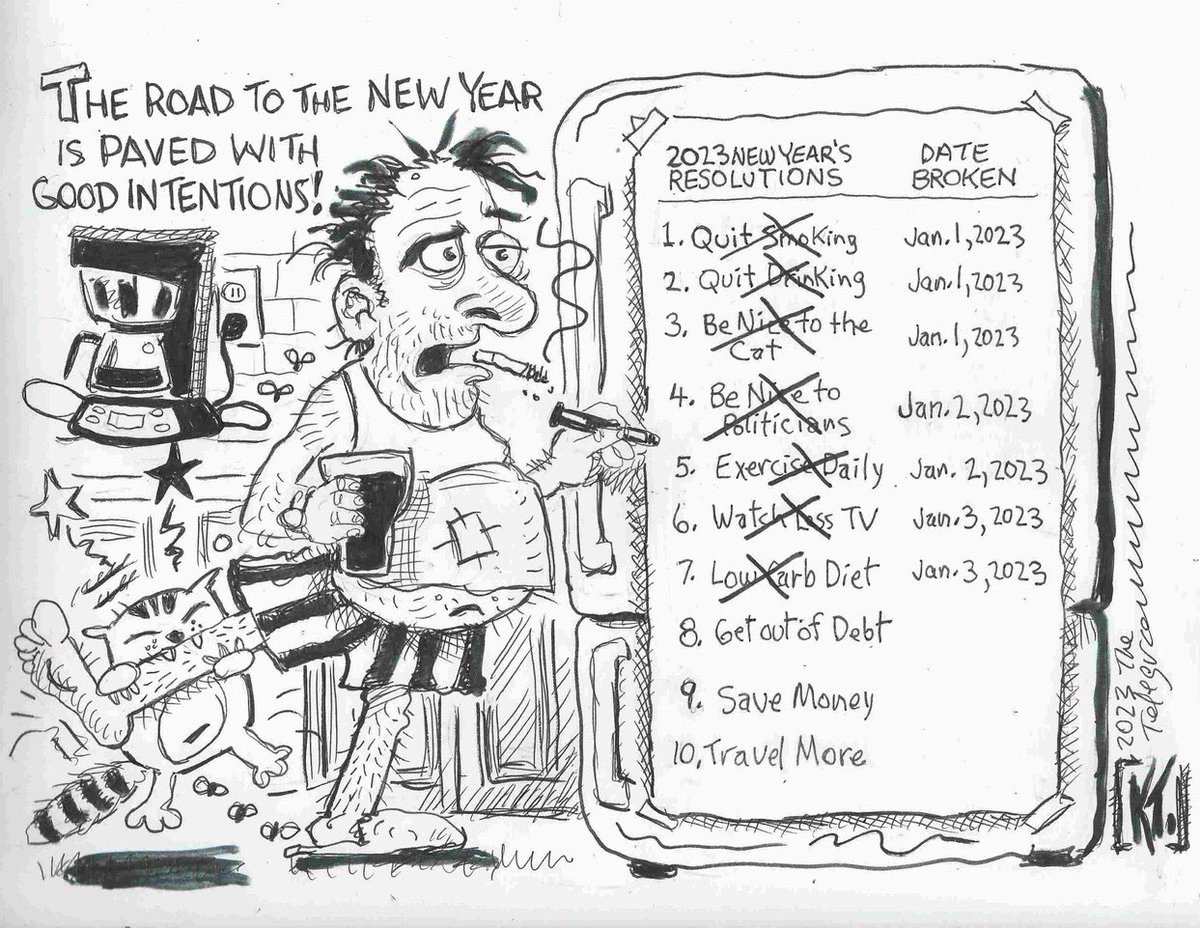 THE ROAD TO THE NEW YEAR
IS PAVED WITH
GOOD INTENTIONS!
2023 NEW YEAR'S RESOLUTIONS
DATE BROKEN
1. Quit Smoking Jan. 1, 2023
2. Quit Drinking Jan. 1, 2023
3. Be Nice to the
Cat Jan. 1, 2023
4. Be Nice to
Politicians Jan. 2, 2023
5. Exercise Daily Jan. 2, 2023
6. Watch Less TV Jan. 3, 2023
7. Low Carb Diet Jan. 3, 2023
8. Get out of Debt
9. Save Money
10. Travel More
2023 The
Telegram
KT.